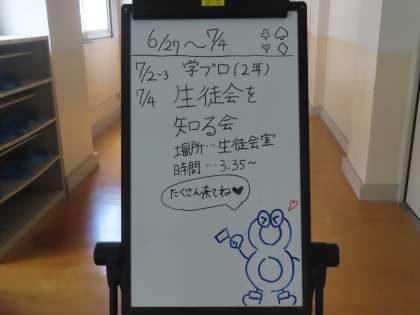 6/27～7/4
7/2-3 学プロ(2年)
7/4 生徒会を
知る会
場所…生徒会室
時間…3.35～
たくさん来てね♥